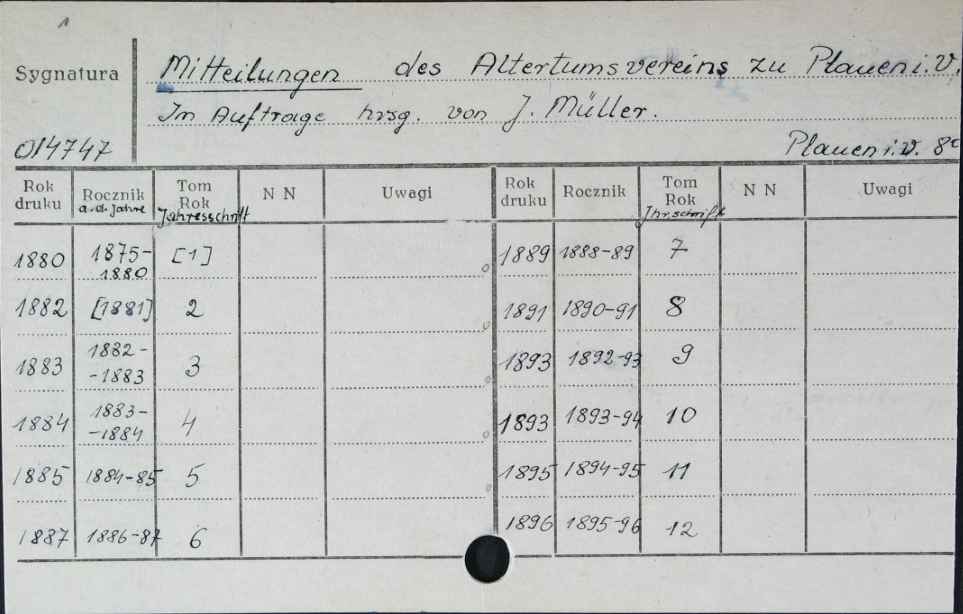 1
Sygnatura
Mitteilungen des Altertumsvereins zu Plauen i. V.
In Auftrage hrsg. von J. Müller.
014747
Plauen i. V. 8°
Rok druku Rocznik a.d. Jahre Tom Rok Jahresschrift N N Uwagi Rok druku Rocznik Tom Rok Jhrschrift N N Uwagi
1880 1875-1880 [1] 1889 1888-89 7
1882 [1881] 2 1891 1890-91 8
1883 1882--1883 3 1893 1892-93 9
1884 1883--1884 4 1893 1893-94 10
1885 1884-85 5 1895 1894-95 11
1887 1886-87 6 1896 1895-96 12